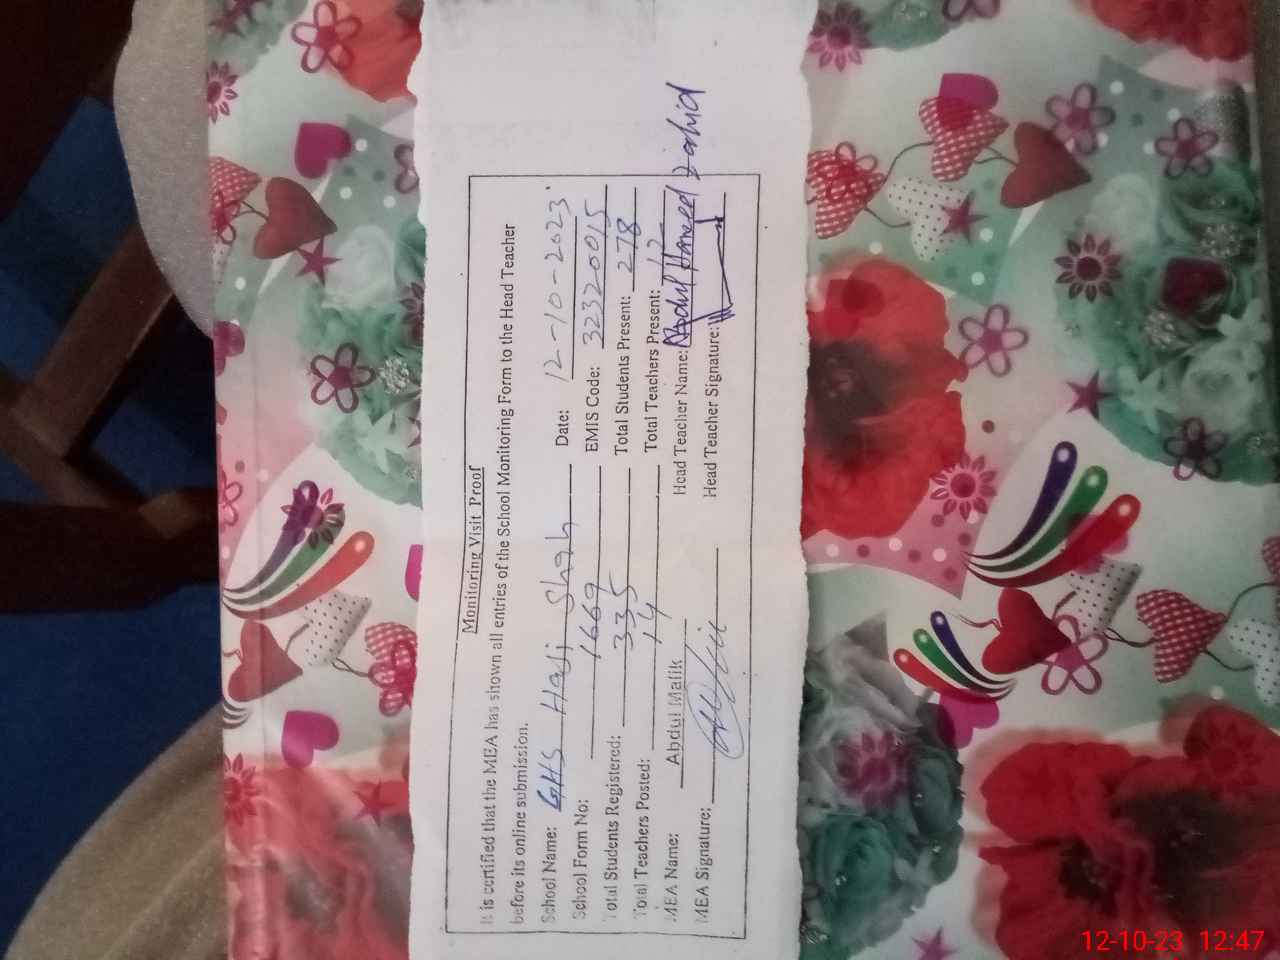 Monitoring Visit Proof
It is certified that the MEA has shown all entries of the School Monitoring Form to the Head Teacher
before its online submission.
School Name: GHS Haji Shah Date: 12-10-2023
School Form No: 1669 EMIS Code: 32320015
Total Students Registered: 335 Total Students Present: 278
Total Teachers Posted: 14 Total Teachers Present: 12
MEA Name: Abdul Malik Head Teacher Name: Abdul Hameed Zahid
MEA Signature: Head Teacher Signature:
12-10-23 12:47